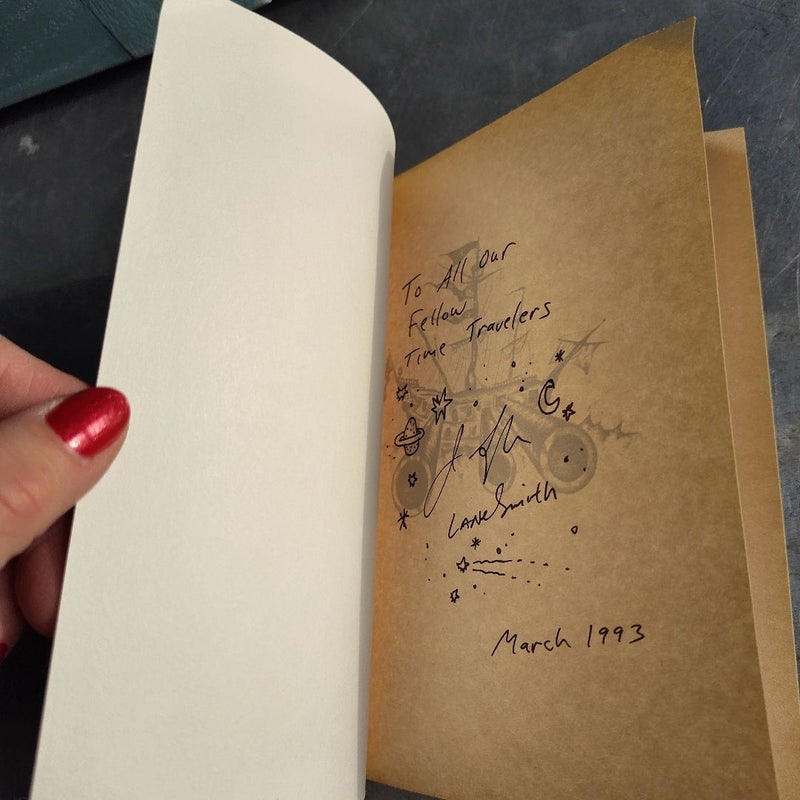 To All Our
Fellow
Time Travelers
Lane Smith
March 1993